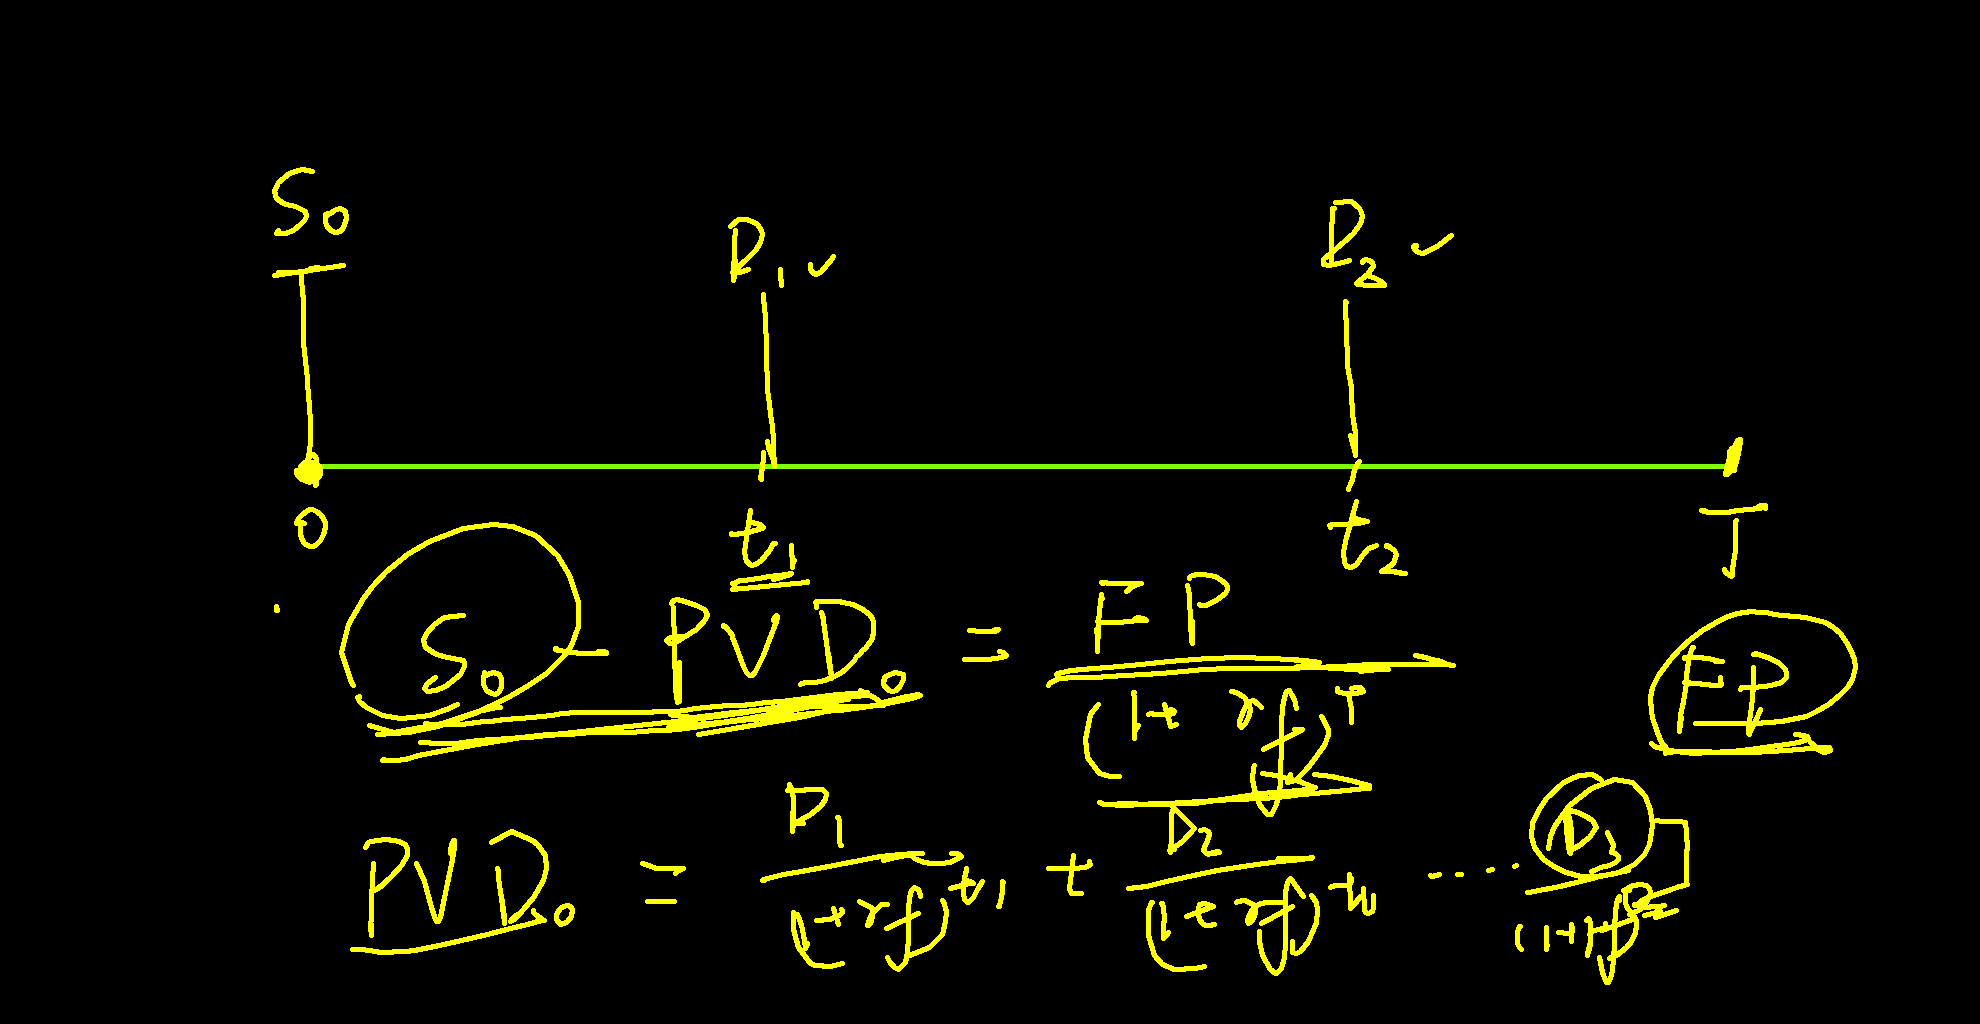 S₀ D₁ ✓ D₂ ✓
0 t₁ t₂ T
S₀ - PVD₀ = FP / (1+rf)^T FP
PVD₀ = D₁ / (1+rf)^t₁ + D₂ / (1+rf)^t₂ ..... D₃ / (1+rf)